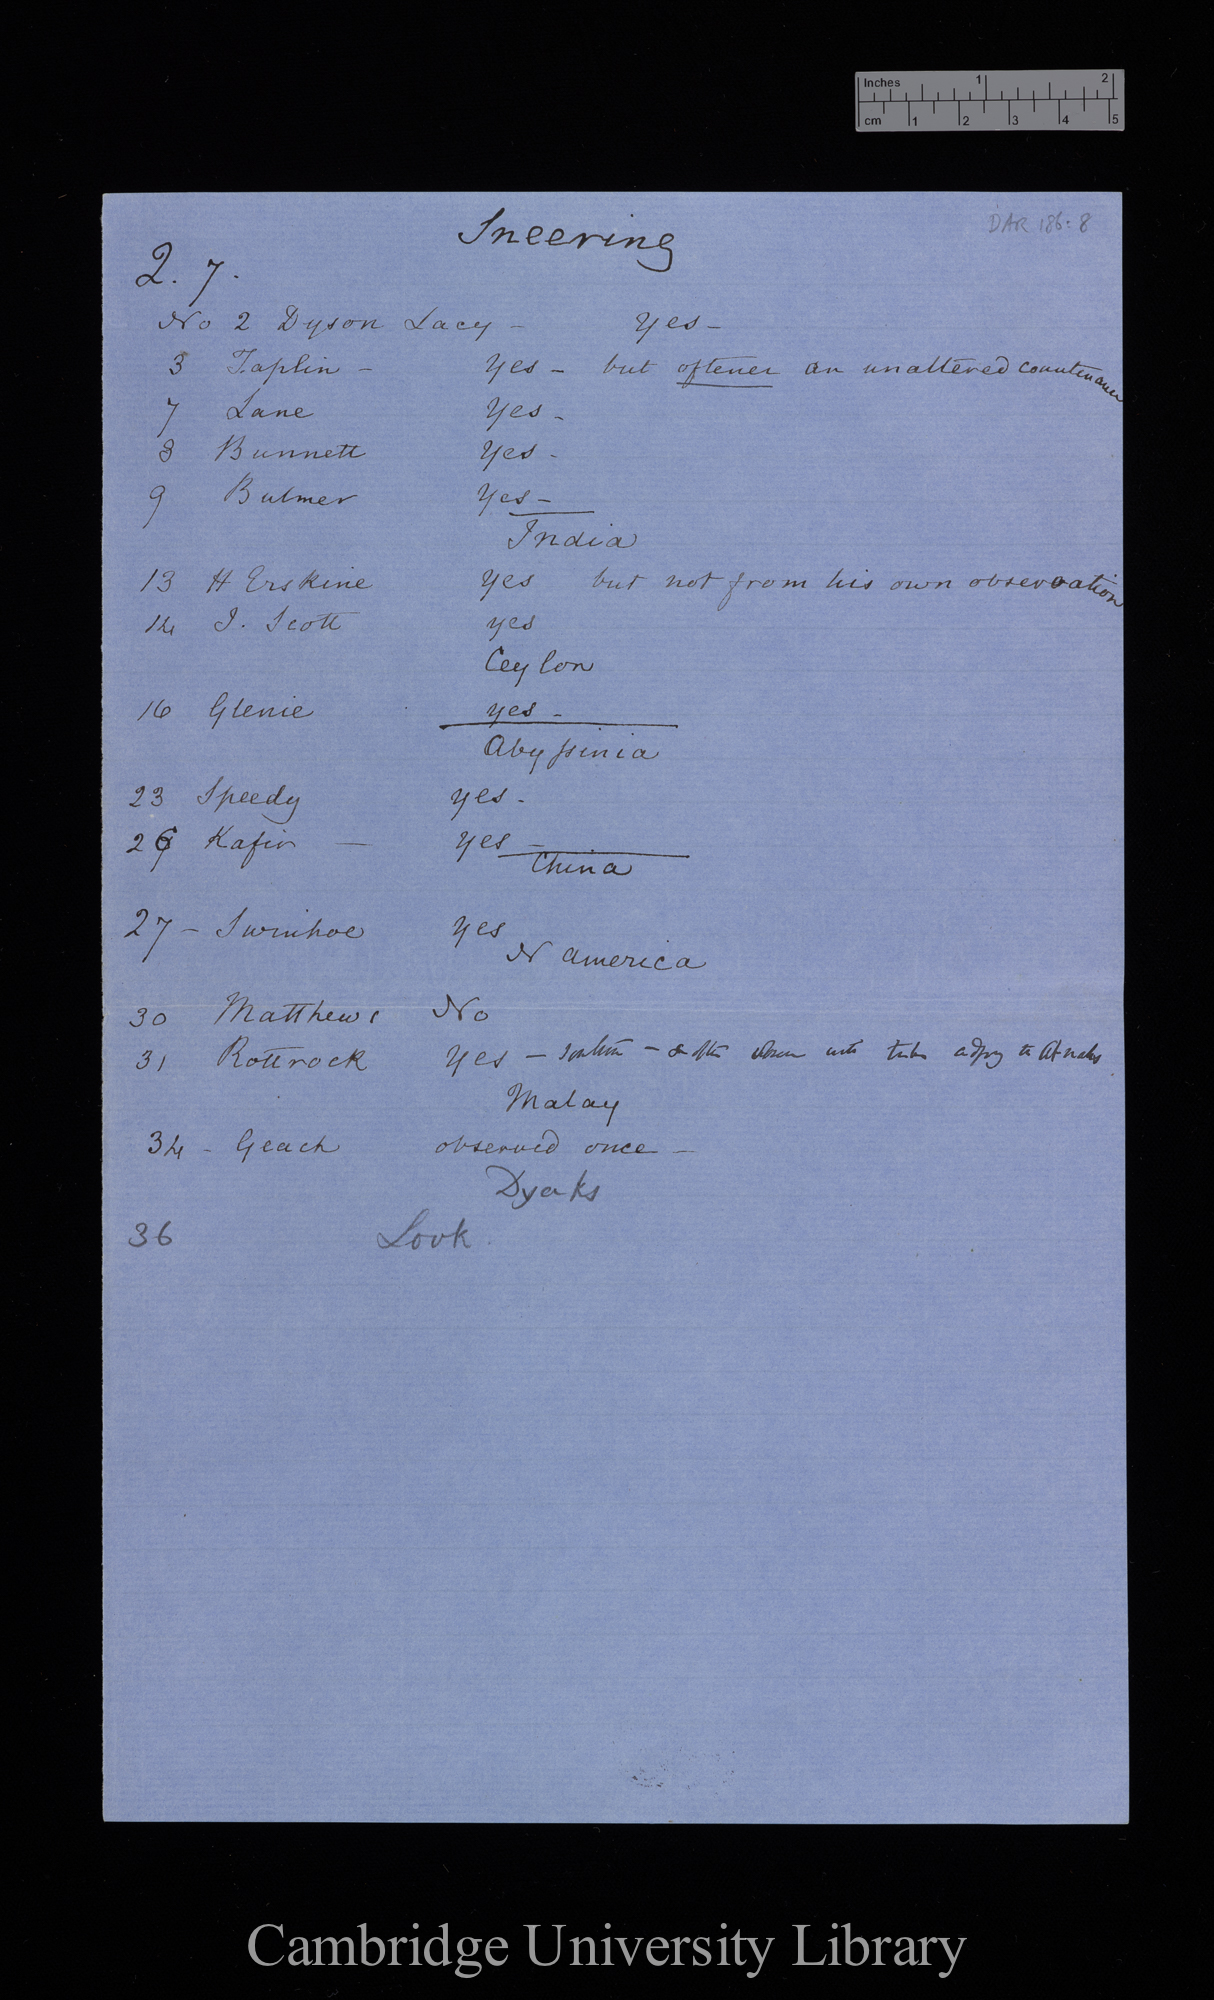 Inches 1 2
cm 1 2 3 4 5
DAR 186:8
Sneering
Q. 7.
No 2 Dyson Lacy – Yes –
3 Taplin – Yes – but oftener an unaltered countenance
7 Lane Yes –
8 Bunnett Yes –
9 Bulmer Yes –
India
13 H Erskine Yes but not from his own observation
14 J. Scott yes
Ceylon
16 Glenie yes –
Abyssinia
23 Speedy yes –
26 Kafir – yes –
China
27 – Swinhoe yes
N America
30 Matthews No
31 Rothrock Yes –
Malay
34 – Geach observed once –
Dyaks
36 Look
Cambridge University Library